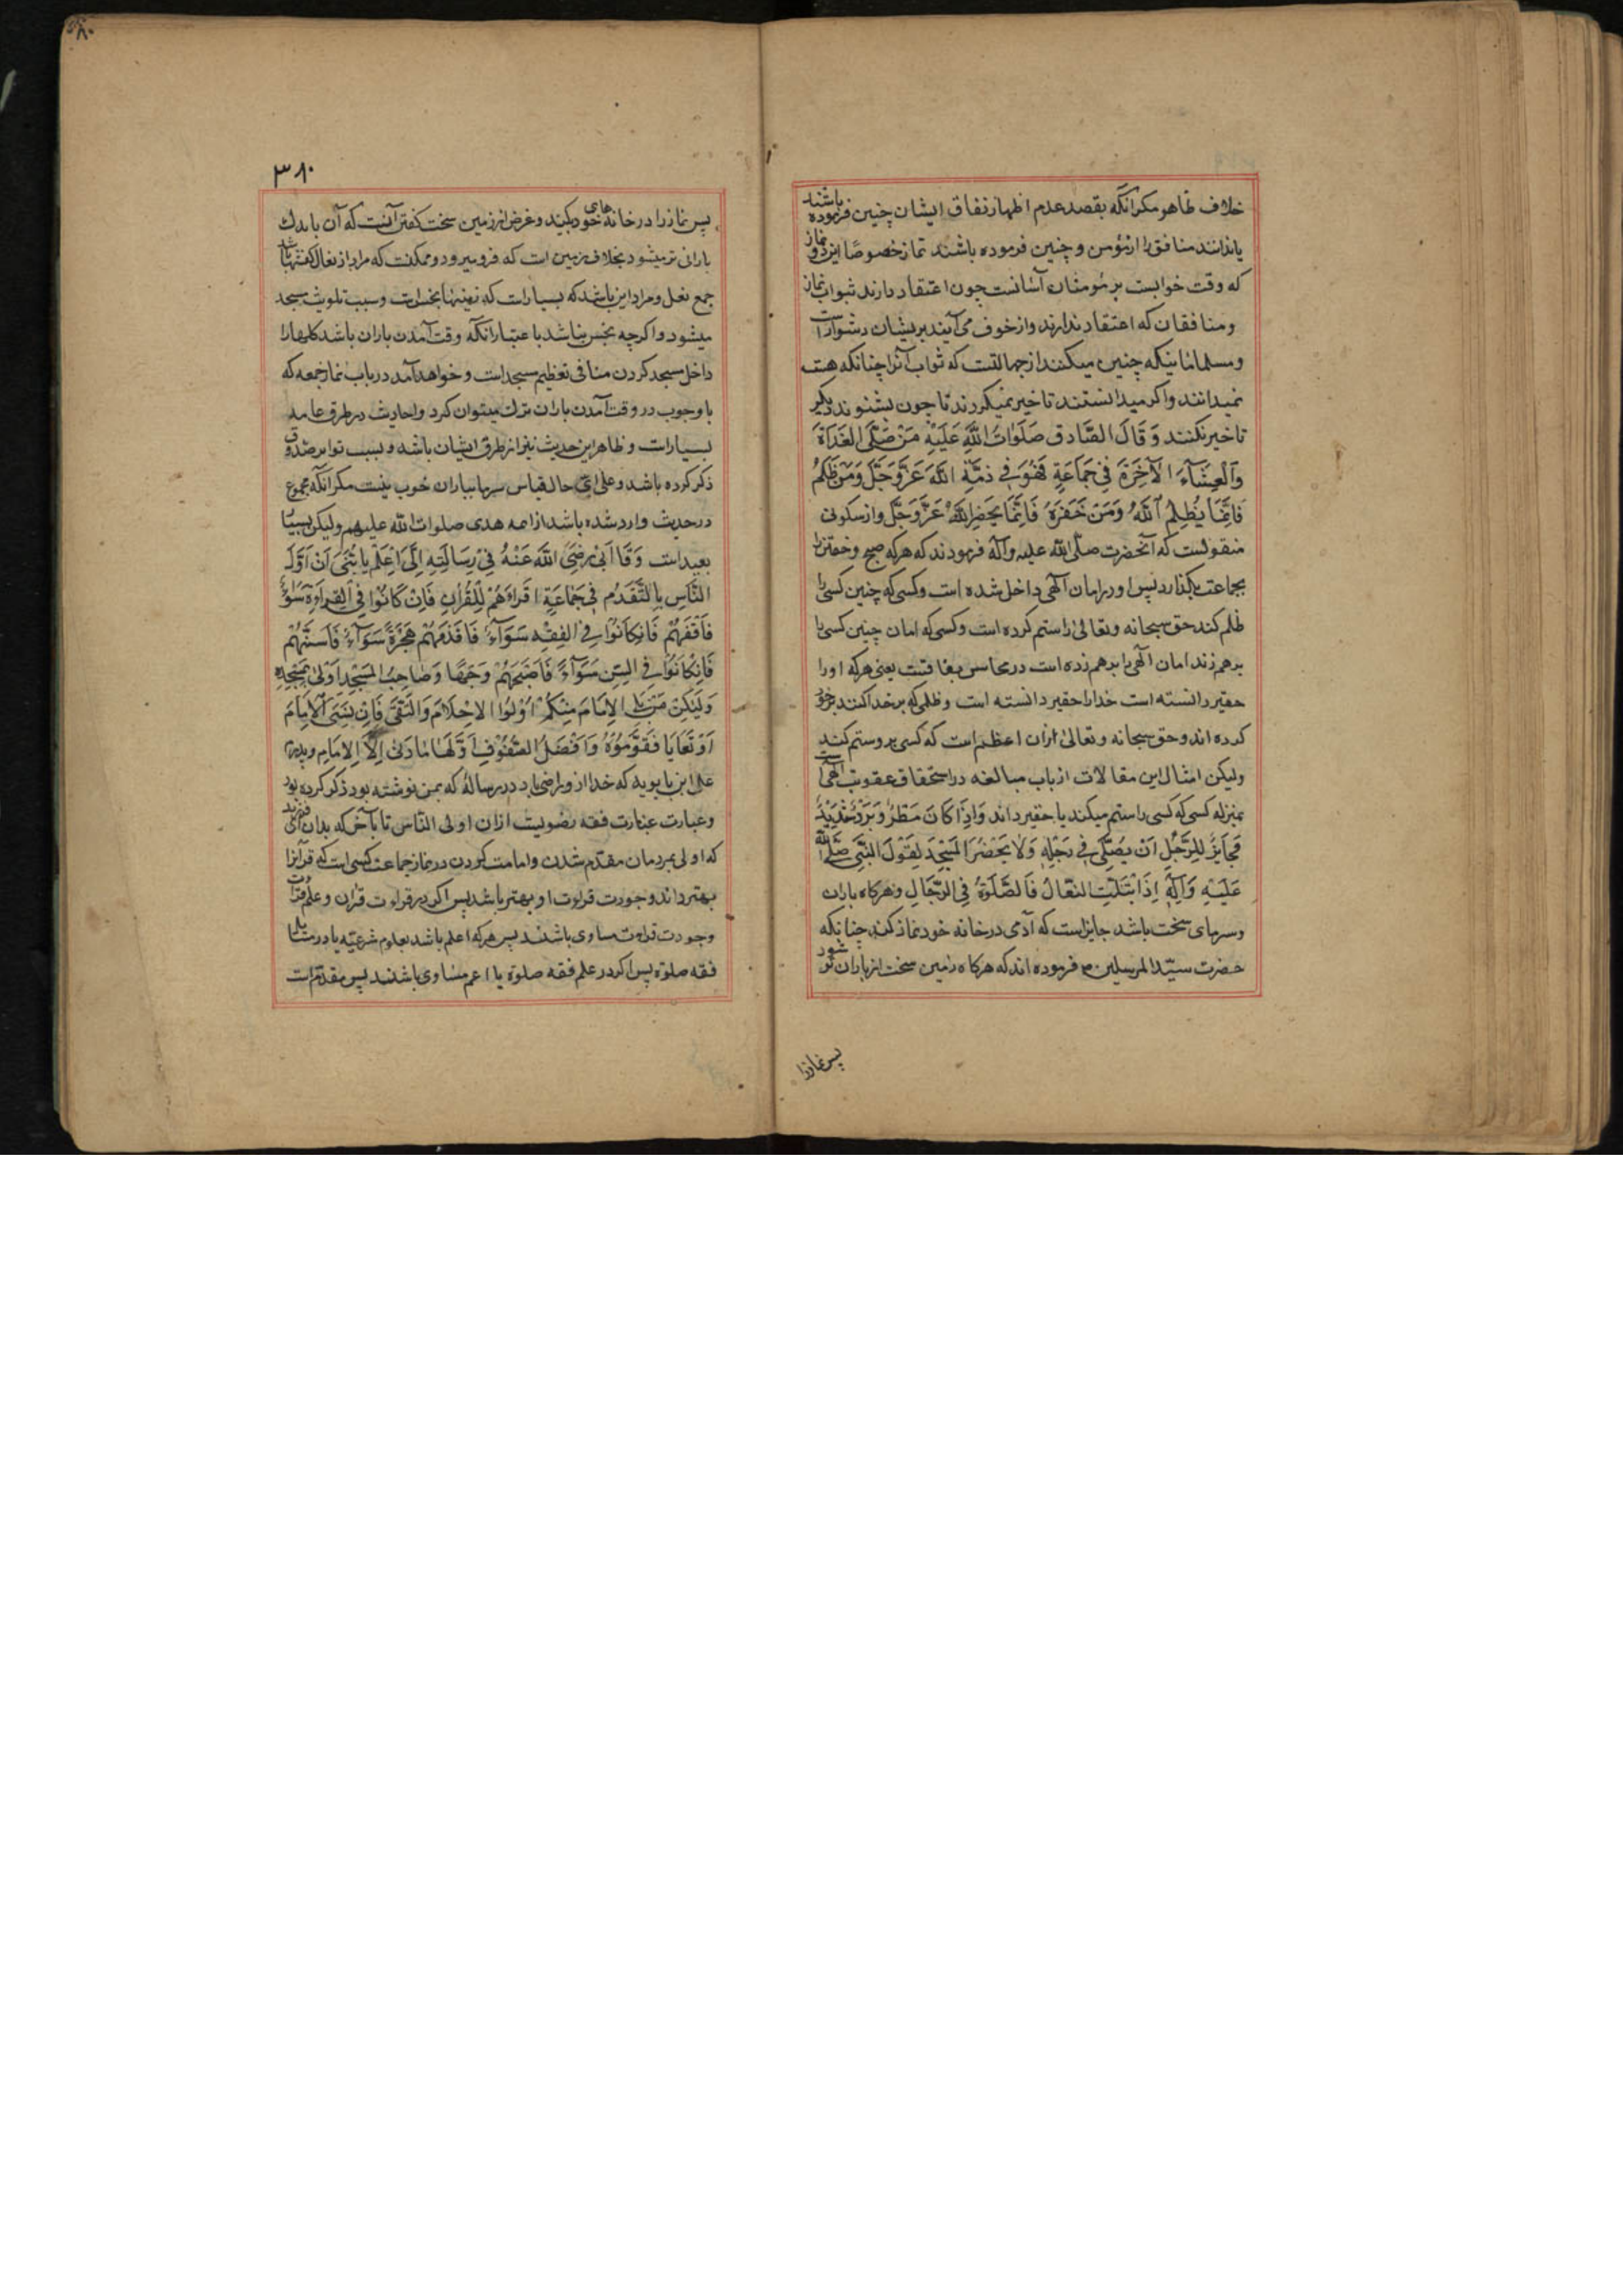 خلاف ظاهر مکر انکه بقصد عدم اظهار نفاق ایشان چنین فرموده باشند
یا ندانند منافق را از مؤمن و چنین فرموده باشند نماز خصوصًا این دو نماز
که وقت خوابست بر مؤمنان آسانست چون اعتقاد دارند ثبواب نماز
و منافقان که اعتقاد ندارند و از خوف می آیند بریشان دشوارست
و مسلمانانیکه چنین میکنند از جهالتست که ثواب آنرا چنانکه هست
نمیدانند و اکر میدانستند تاخیر نمیکردند تا چون بشنوند دیکر
تاخیر نکنند وَ قَالَ الصَّادِق صَلَوَاتُ اللَّهِ عَلَيْهِ مَنْ صَلَّى الغَدَاةَ
وَالْعِشَاءَ الآخِرَةَ فِي جَمَاعَةٍ فَهُوَ فِي ذِمَّةِ اللَّهِ عَزَّ وَجَلَّ وَمَنْ ظَلَمَهُ
فَاِنَّمَا يَظْلِمُ اللَّهَ وَمَنْ حَقَرَهُ فَاِنَّمَا يَحْقِرُ اللَّهَ عَزَّ وَجَلَّ و از سکونی
منقولست که آنحضرت صلّی الله علیه وآله فرمودند که هرکه صبح و خفتن را
بجماعت بکذارد پس او در امان آلهی داخل شده است و کسی که چنین کسی را
ظلم کند حق سبحانه و تعالی را ستم کرده است و کسی که امان چنین کسی را
برهم زند امان آلهی را برهم زده است در محاسن بقافست یعنی هرکه او را
حقیر دانسته است خدا را حقیر دانسته است و ظلمی که بر خدا کنند بر خود
کرده اند و حق سبحانه و تعالی ازان اعظم است که کسی برو ستم کند
ولیکن امثال این مقالات از باب مبالغه در استحقاق عقوبت الهی است
بمنزله کسی که کسی را ستم میکند یا حقیر داند وَاِذَا كَانَ مَطَرٌ وَبَرْدٌ شَدِيدٌ
فَجَايِزٌ لِلرَّجُلِ اَنْ يُصَلِّيَ فِي رَحْلِهِ وَلَا يَحْضُرَ المَسْجِدَ لِقَوْلِ النَّبِيِّ صَلَّى اللَّهُ
عَلَيْهِ وَآلِهِ اِذَا ابْتَلَّتِ النِّعَالُ فَالصَّلَوةُ فِي الرِّحَالِ و هرکاه باران
و سرمای سخت باشد جایز است که آدمی در خانه خود نماز کند چنانکه
حضرت سیّد المرسلین ص فرموده اند که هرکاه زمین سخت از باران تر شود
پس نماز را
۳۸۰
پس نماز را در خانه های خود بکنید و غرض از زمین سخت کفتن آنست که آن باندک
بارانی تر میشود بخلاف زمین است که فرو میرود و ممکنست که مراد از نعال کفشها باشد
جمع نعل و مراد این باشد که بسیار است که تینها نجس است و سبب تلویث مسجد
میشود و اکرچه نجس نباشد باعتبار انکه وقت آمدن باران باشد کلها را
داخل مسجد کردن منافی تعظیم مسجد است و خواهد آمد در باب نماز جمعه که
با وجوب در وقت آمدن باران ترک میتوان کرد و احادیث در طرق عامه
بسیار است و ظاهر این حدیث نیز از طرق ایشان باشد و بسبب تواتر صدوق
ذکر کرده باشد و علی ای حال قیاس سرما بباران خوب نیست مکر انکه مجموع
در حدیث وارد شده باشد از ایمه هدی صلوات الله علیهم ولیکن بسیار
بعید است وَقَالَ اَبِي رَضِيَ اللَّهُ عَنْهُ فِي رِسَالَتِهِ اِلَيَّ اِعْلَمْ يَا بُنَيَّ اَنَّ اَوَّلَ
النَّاسِ بِالتَّقَدُّمِ فِي جَمَاعَةٍ اَقْرَاهُمْ لِلْقُرْآنِ فَاِنْ كَانُوا فِي القِرَاءَةِ سَوَاءً
فَاَفْقَهُهُمْ فَاِنْ كَانُوا فِي الفِقْهِ سَوَاءً فَاَقْدَمُهُمْ هِجْرَةً سَوَاءً فَاَسَنُّهُمْ
فَاِنْ كَانُوا فِي السِّنِّ سَوَاءً فَاَصْبَحُهُمْ وَجْهًا وَصَاحِبُ المَسْجِدِ اَوْلَى بِمَسْجِدِهِ
وَلْيَكُنْ مَنْ يَلِي الاِمَامَ مِنْكُمْ اُولُوا الاَحْلَامِ وَالتُّقَى فَاِنْ نَسِيَ الاِمَامُ
اَوْ تَعَايَا فَقَوَّمُوهُ وَاَفْضَلُ الصُّفُوفِ اَوَّلُهَا مَا دَنَى اِلَى الاِمَامِ و پدرم
علی ابن بابویه که خدا ازو راضی باد در رساله که بمن نوشته بود ذکر کرده بود
و عبارت عبارت فقه رضویست ازان اولی الناس تا بآخر که بدان ای فرزند
که اولی بمردمان مقدم شدن و امامت کردن در نماز جماعت کسی است که قرآنرا
بهتر داند و جودت قراءت او بهتر باشد پس اکر در قراءت قرآن و علم قراءت
و جودت قراءت مساوی باشند پس هرکه اعلم باشد بعلوم شرعیّه یا در مسایل
فقه صلوة پس اکر در علم فقه صلوة یا اعم مساوی باشند پس مقدّم است